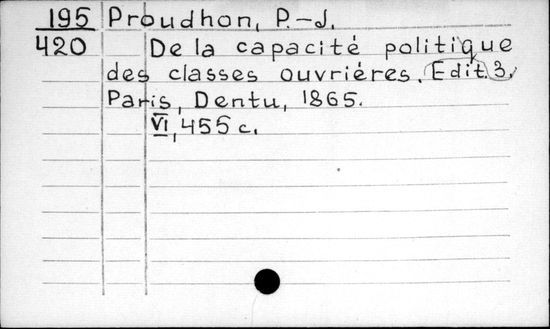 195 Proudhon, P.-J.
420 De la capacité politique
des classes ouvriéres. Edit. 3.
Paris, Dentu, 1865.
VI, 455 c.